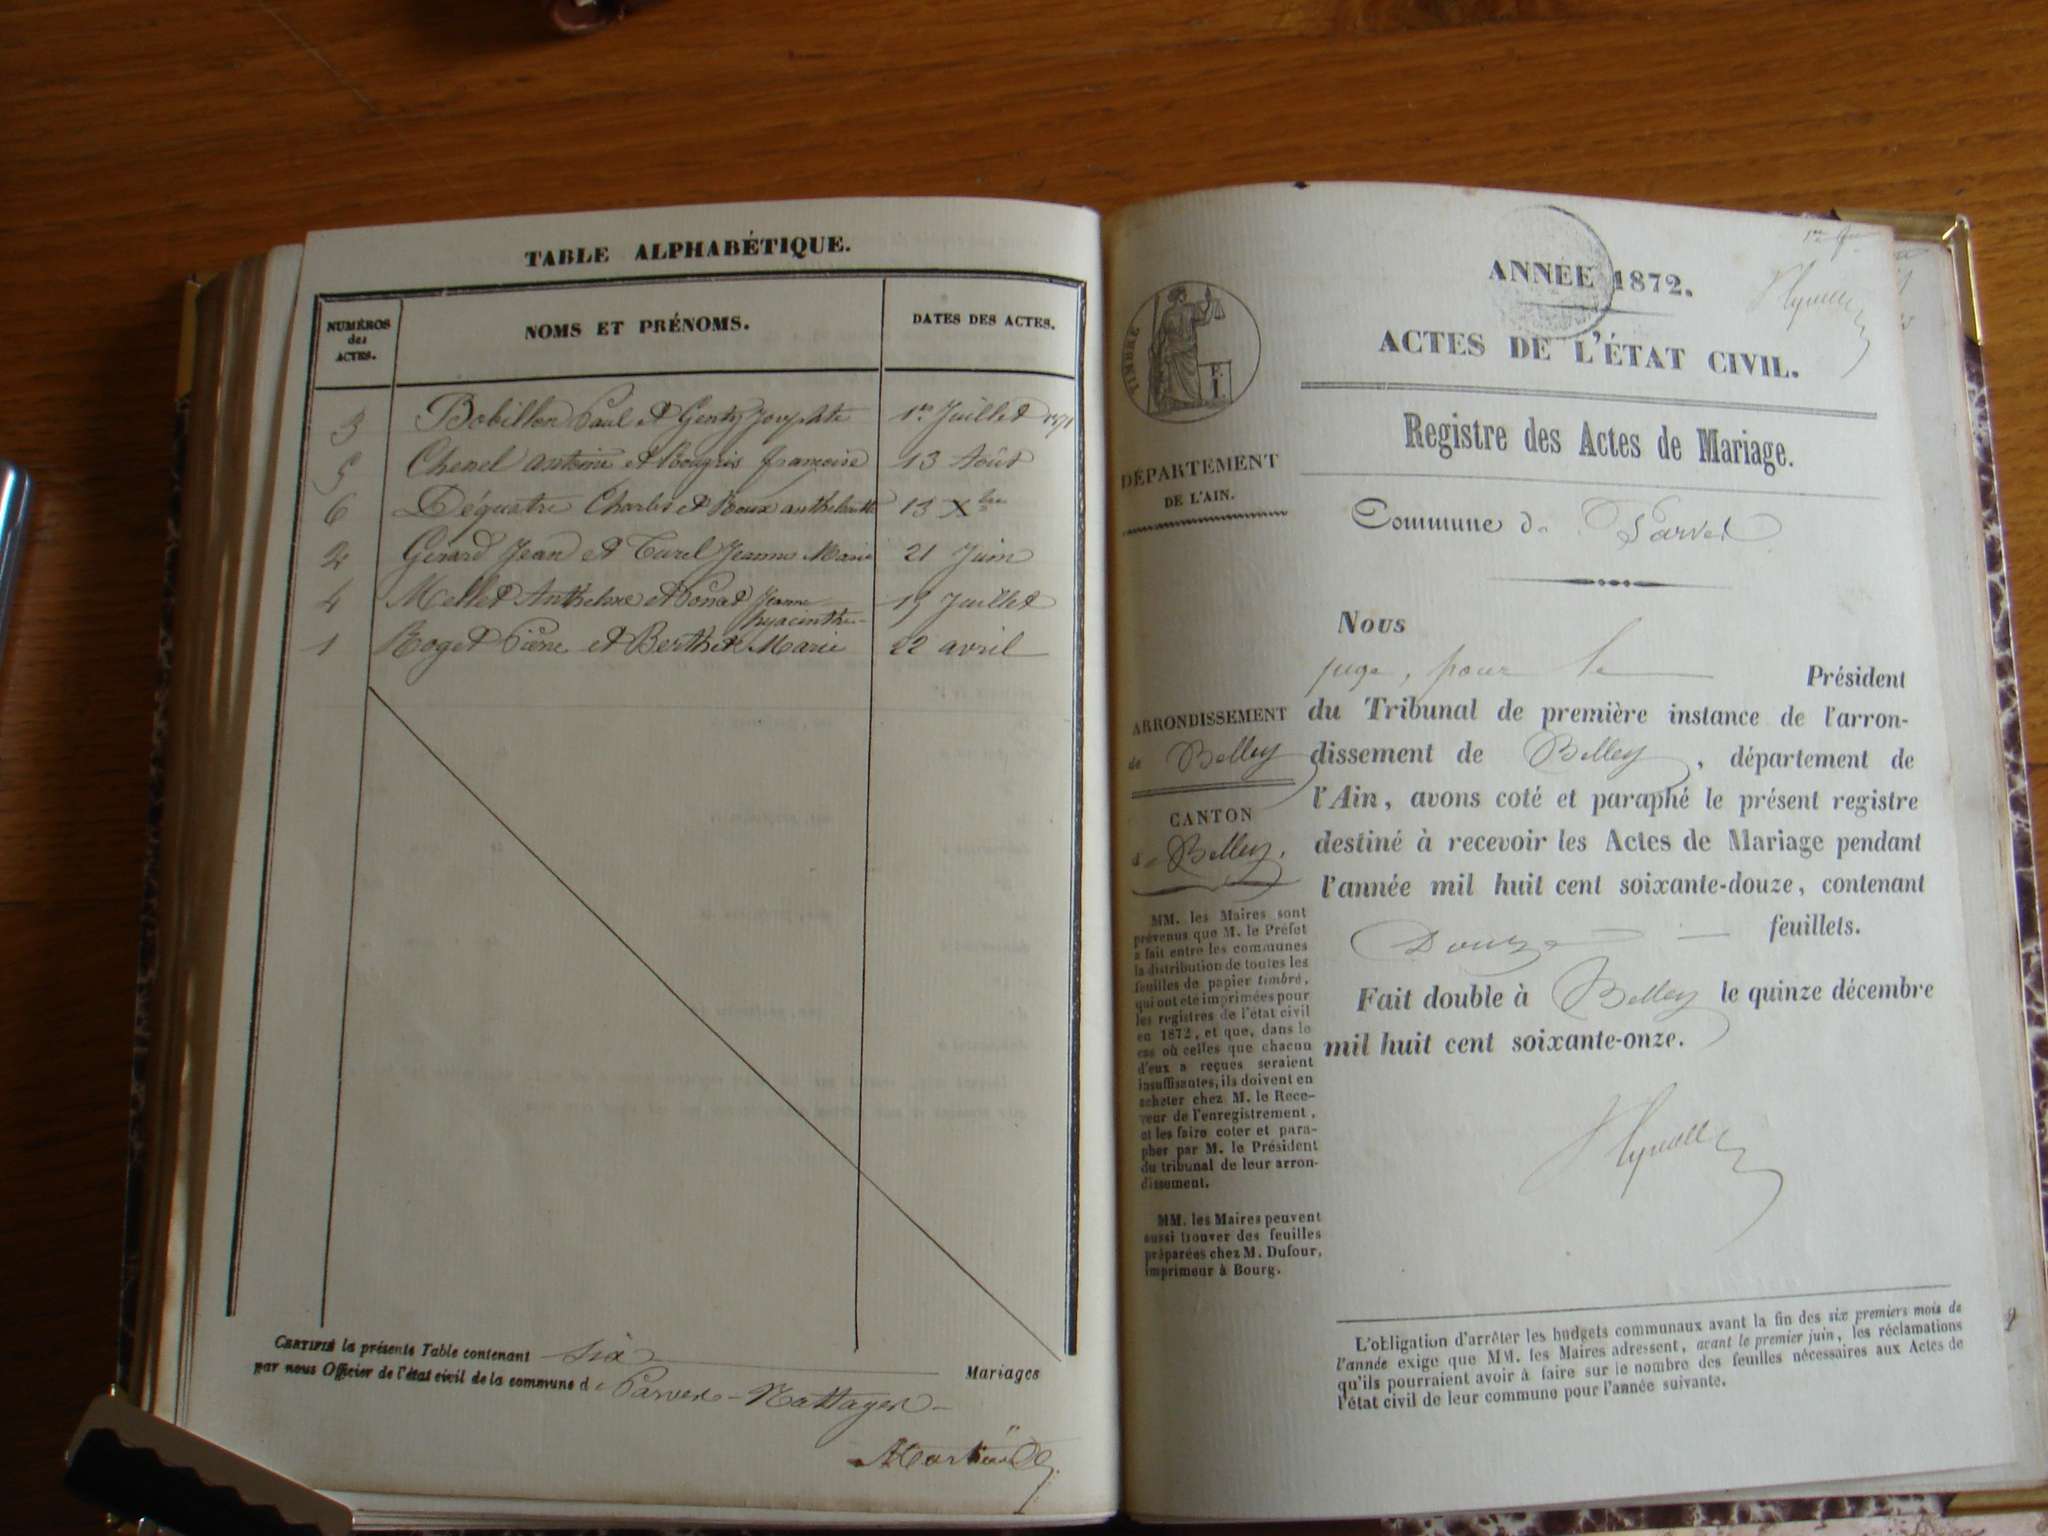 TABLE ALPHABÉTIQUE.
NUMÉROS des ACTES.
NOMS ET PRÉNOMS.
DATES DES ACTES.
3 Bobillon Paul et Genty Josephte 1er Juillet 1871
5 Chenel antoine et Bougris françoise 13 Août
6 Déquatre Charles et Roux anthelmette 13 Xbre
2 Gerard Jean et Turel Jeanne Marie 21 Juin
4 Mellet Anthelme et Jeanne hyacinthe 15 Juillet
1 Roget Pierre et Berthet Marie 22 avril
CERTIFIÉ la présente Table contenant six Mariages
par nous Officier de l'état civil de la commune de Parves-Nattages
ANNÉE 1872.
ACTES DE L'ÉTAT CIVIL.
Registre des Actes de Mariage.
TIMBRE
DÉPARTEMENT
DE L'AIN.
Commune de Parves
Nous
juge, pour le Président
ARRONDISSEMENT
de Belley
CANTON
de Belley.
du Tribunal de première instance de l'arron-
dissement de Belley, département de
l'Ain, avons coté et paraphé le présent registre
destiné à recevoir les Actes de Mariage pendant
l'année mil huit cent soixante-douze, contenant
Douze feuillets.
Fait double à Belley le quinze décembre
mil huit cent soixante-onze.
MM. les Maires sont
prévenus que M. le Préfet
a fait entre les communes
la distribution de toutes les
feuilles de papier timbré,
qui ont été imprimées pour
les registres de l'état civil
en 1872, et que, dans le
cas où celles que chacun
d'eux a reçues seraient
insuffisantes, ils doivent en
acheter chez M. le Rece-
veur de l'enregistrement,
et les faire coter et para-
pher par M. le Président
du tribunal de leur arron-
dissement.
MM. les Maires peuvent
aussi trouver des feuilles
préparées chez M. Dufour,
imprimeur à Bourg.
L'obligation d'arrêter les budgets communaux avant la fin des six premiers mois de
l'année exige que MM. les Maires adressent, avant le premier juin, les réclamations
qu'ils pourraient avoir à faire sur le nombre des feuilles nécessaires aux Actes de
l'état civil de leur commune pour l'année suivante.